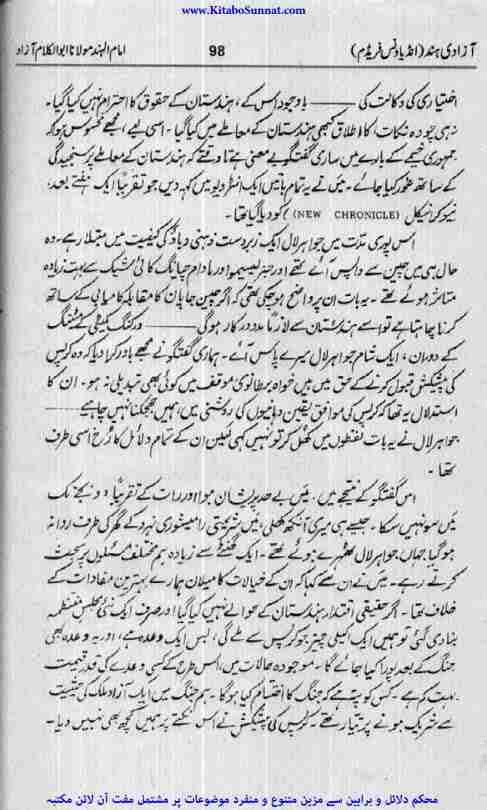 www.KitaboSunnat.com
آزادی ہند (انڈیا ونس فریڈم)
98
امام الہند مولانا ابوالکلام آزاد
اختیاری کی وکالت کی ــــــــ باوجود اس کے، ہندستان کے حقوق کا احترام نہیں کیا گیا۔
نہ ہی چودہ نکات، کا اطلاق کبھی ہندستان کے معاملے میں کیا گیا۔ اسی لیے، مجھے محسوس ہوا کہ
جمہوری خیمے کے بارے میں ساری گفتگو بے معنی ہے تاوقتے کہ ہندستان کے معاملے پر سنجیدگی
کے ساتھ غور کیا جائے۔ میں نے یہ تمام باتیں ایک انٹرویو میں کہہ دیں جو تقریباً ایک ہفتے بعد،
نیو کرانیکل (NEW CHRONICLE) کو دیا گیا تھا۔
اس پوری مدت میں جواہر لال ایک زبردست ذہنی دباؤ کی کیفیت میں مبتلا رہے۔ وہ
حال ہی میں چین سے واپس آئے تھے اور جنرلیسیمو اور مادام چیانگ کائی شیک سے بہت زیادہ
متاثر ہوئے تھے۔ یہ بات ان پر واضح ہو چکی تھی کہ اگر چین جاپان کا مقابلہ کامیابی کے ساتھ
کرنا چاہتا ہے تو اسے ہندستان سے لازماً مدد درکار ہوگی ــــــــ ورکنگ کمیٹی کے میٹنگ
کے دوران، ایک شام جواہر لال میرے پاس آئے۔ ہماری گفتگو نے مجھے باور کرا دیا کہ وہ کرپس
کی پیشکش قبول کرنے کے حق میں ہیں خواہ برطانوی موقف میں کوئی بھی تبدیلی نہ ہو۔ ان کا
استدلال یہ تھا کہ کرپس کی موافق یقین دہانیوں کی روشنی میں، ہمیں جھجکنا نہیں چاہیے ــــــــ
جواہر لال نے یہ بات لفظوں میں کھل کر تو نہیں کہی لیکن ان کے تمام دلائل کا رُخ اسی طرف
تھا۔
اس گفتگو کے نتیجے میں، میں بے حد پریشان ہوا اور رات کے تقریباً دو بجے تک
میں سو نہیں سکا۔ جیسے ہی میری آنکھ کھلی، میں شریمتی رامیشوری نہرو کے گھر کی طرف روانہ
ہو گیا جہاں جواہر لال ٹھہرے ہوئے تھے۔ ایک گھنٹے سے زیادہ ہم مختلف مسئلوں پر بحث
کرتے رہے۔ میں نے ان سے کہا کہ ان کے خیالات کا میلان ہمارے بہترین مفادات کے
خلاف تھا۔ اگر حقیقی اقتدار ہندستان کے حوالے نہیں کیا گیا اور صرف ایک نئی مجلس منتظمہ
بنا دی گئی تو ہمیں ایک اکیلی چیز جو کرپس سے ملے گی، بس ایک وعدہ ہے، اور یہ وعدہ بھی
جنگ کے بعد پورا کیا جائے گا۔ موجودہ حالات میں، اس طرح کے کسی وعدے کی قدر قیمت
بہت کم ہے۔ کس کو پتہ ہے کہ جنگ کا اختتام کیا ہوگا۔ ہم جنگ میں ایک آزاد ملک کی حیثیت
سے شریک ہونے پر تیار تھے۔ کرپس کی پیشکش نے اس نکتے پر ہمیں کچھ بھی نہیں دیا۔
محکم دلائل و براہین سے مزین متنوع و منفرد موضوعات پر مشتمل مفت آن لائن مکتبہ